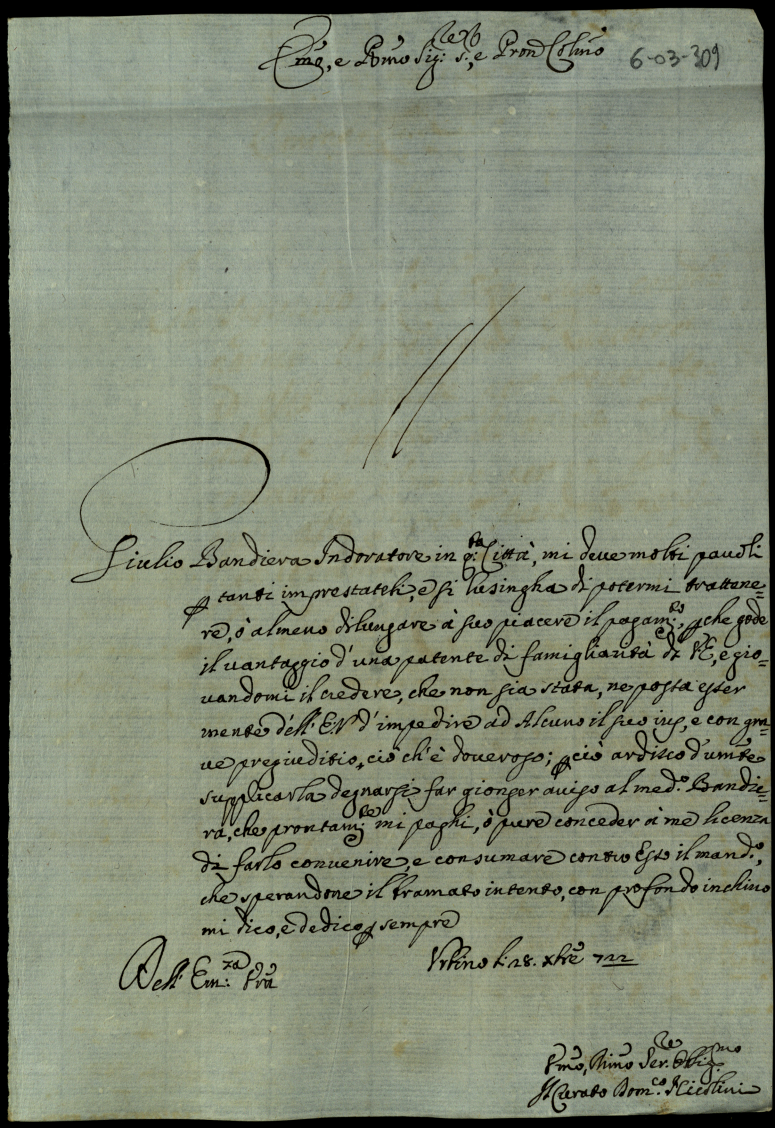 Emo, e Rmo Sig:re s:, e Pron Colmo
6-03-309
Giulio Bandiera Indoratore in q:ta Città, mi deve molti pauoli
p tanti imprestateli, e si lusingha di potermi trattene=
re, ò almeno dilungare à suo piacere il pagam:to, p che gode
il vantaggio d'una patente di famigliarità di VE, e gio=
vandomi il credere, che non sia stata, ne possa esser
mente dell'E.V. d'impedire ad Alcuno il suo ius, e con gra=
ve pregiuditio, ciò ch'è doveroso; p ciò ardisco d'umte
supplicarla degnarsi far gionger auiso al med:o Bandie=
ra, che prontam:te mi paghi, ò pure conceder à me licenza
di farlo convenire, e consumare contro Esso il mand:o,
che sperandone il bramato intento, con profondo inchino
mi dico, e dedico p sempre
Dell'Em:za Vra
Urbino li 28. Xbre 722
Vmo, Ser:re Obligmo
Il Curato Dom:co Nicolini